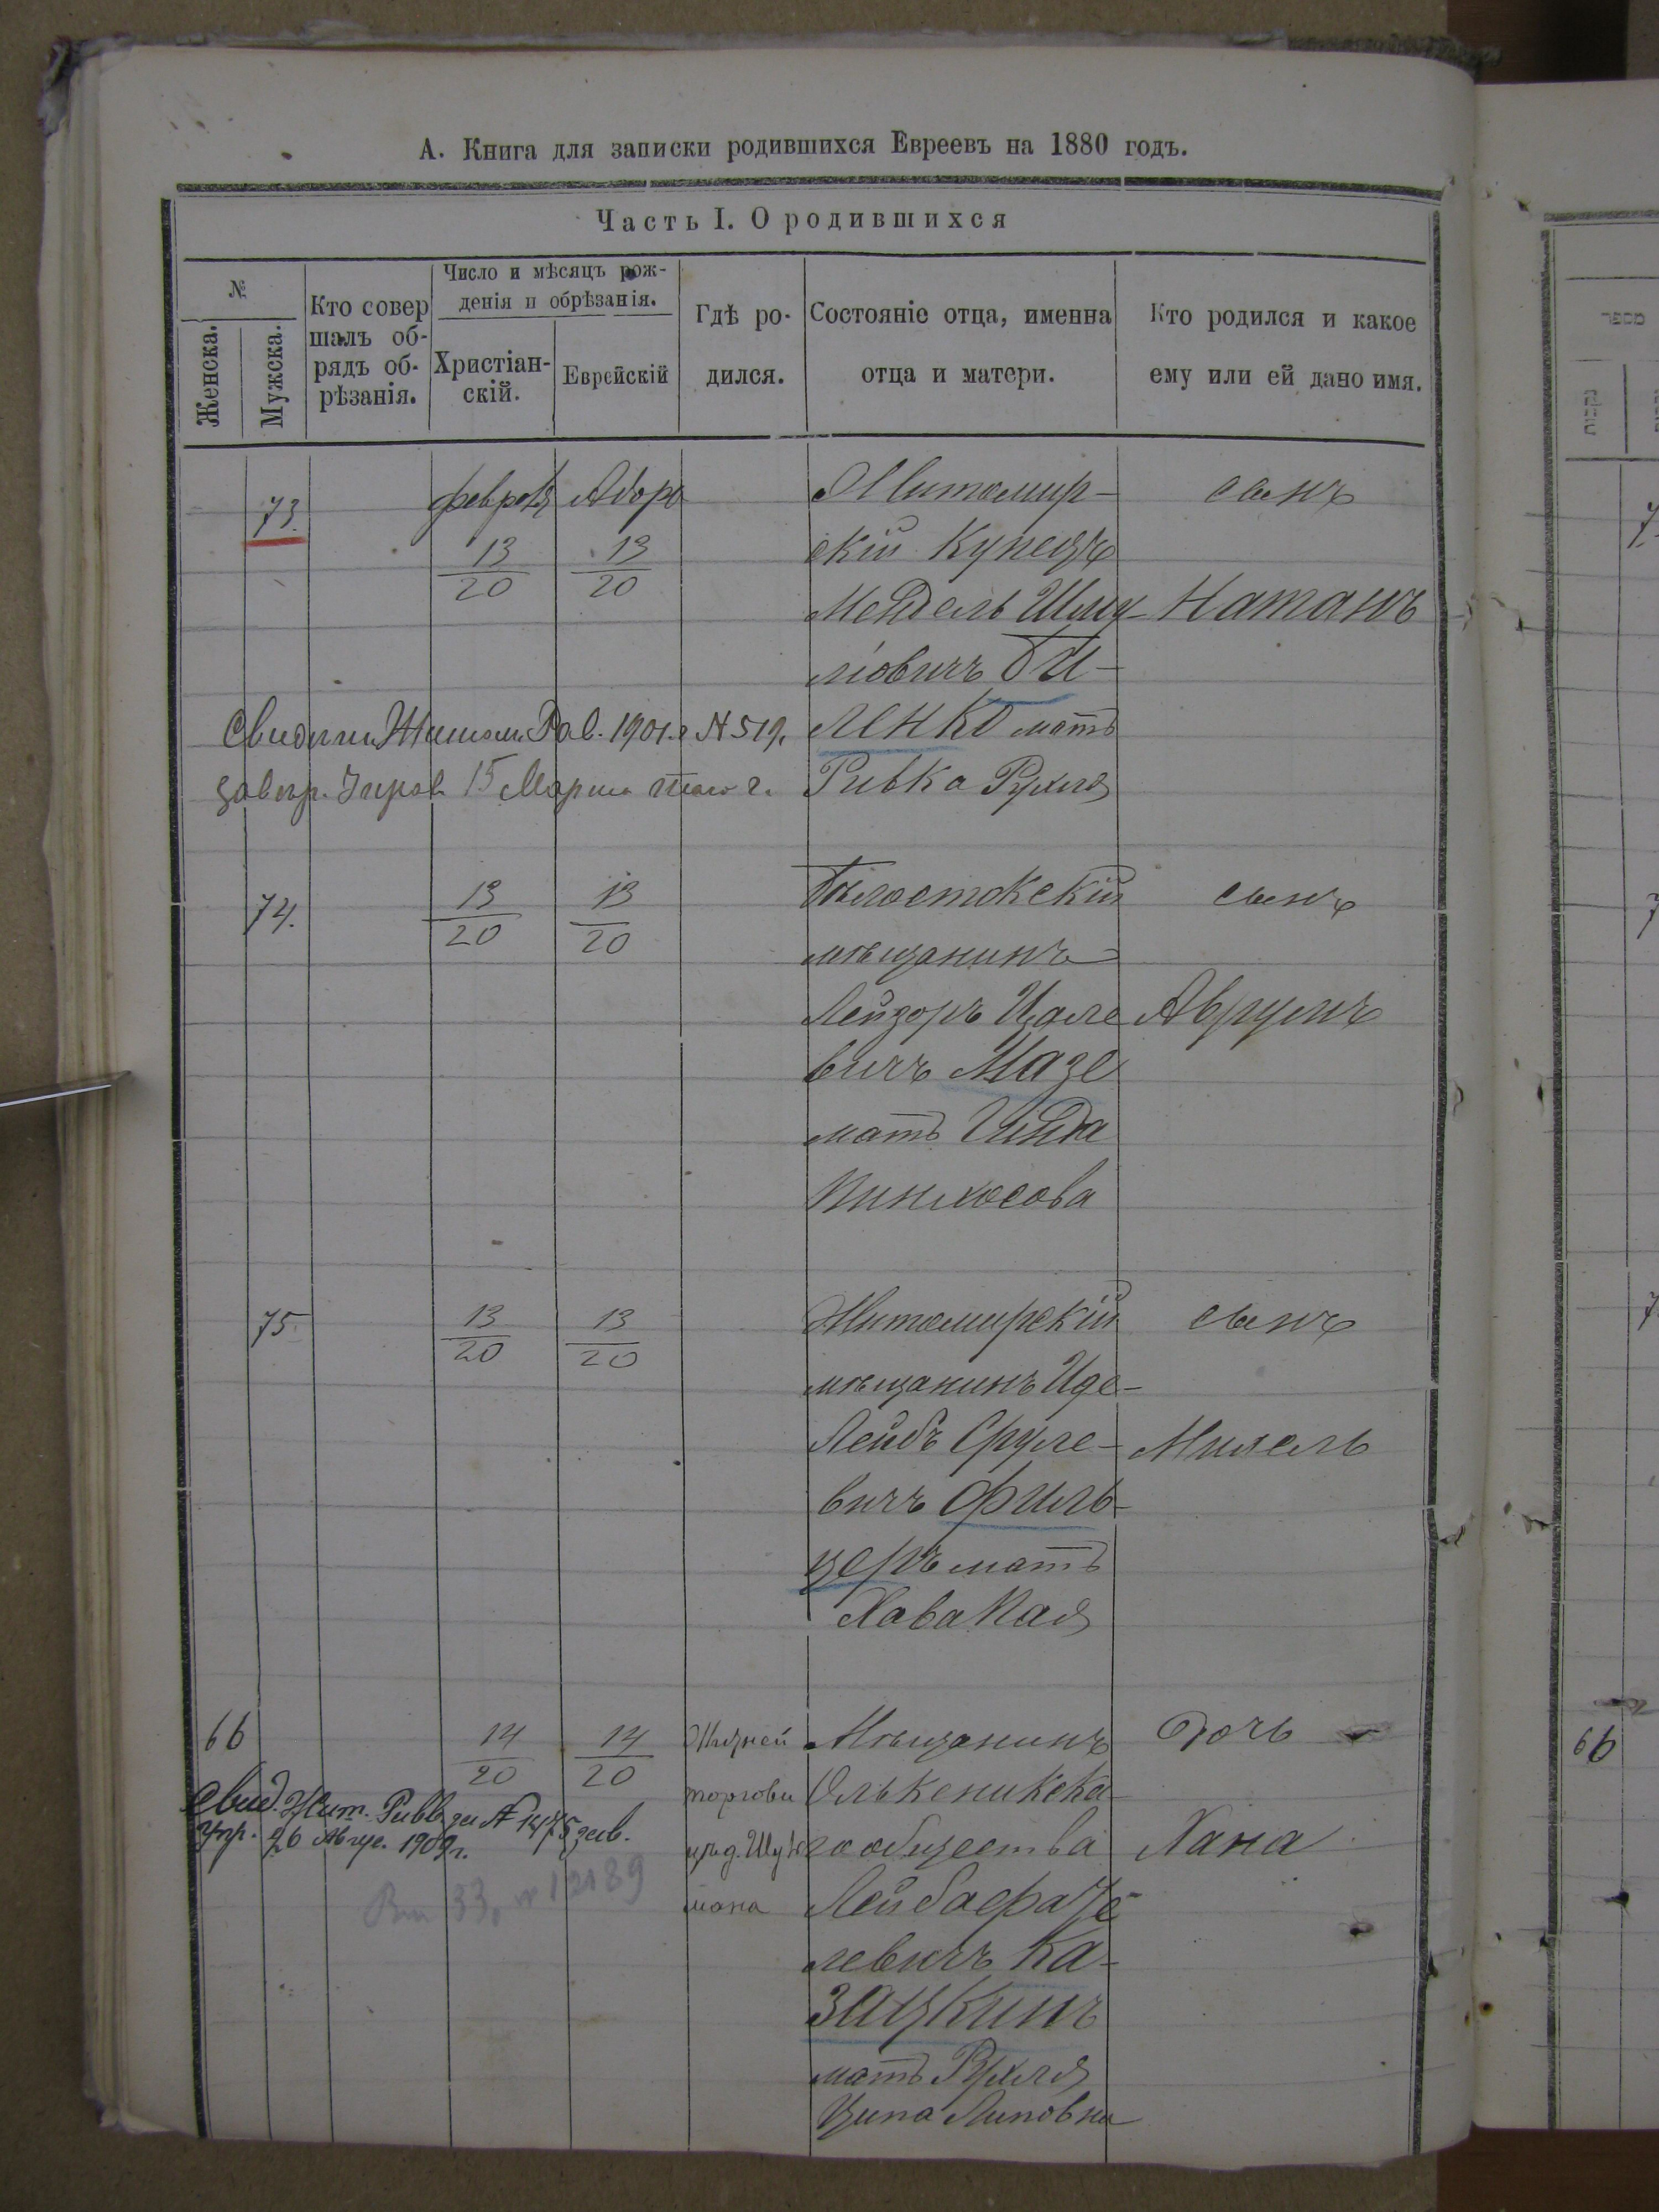 А. Книга для записки родившихся Евреевъ на 1880 годъ.
Часть I. О родившихся
№
Женска.
Мужска.
Кто совер
шалъ об-
рядъ об-
рѣзанія.
Число и мѣсяцъ рож-
денія и обрѣзанія.
Христіан-
скій.
Еврейскій
Гдѣ ро-
дился.
Состояніе отца, именна
отца и матери.
Кто родился и какое
ему или ей дано имя.
73.
13
20
13
20
Житомир-
скій Купецъ
Мендель Шму-
ліовичъ Би-
ленко мать
Ривка Рухля
сынъ
Натанъ
Рав. 1901 г № 519.
15 Марта г.
74.
13
20
13
20
Бѣлостокскій
мѣщанинъ
Лейзоръ Ицле
вичъ Мазе
мать Гинда
Пинхосова
сынъ
Аврумъ
75
13
20
13
20
Житомирскій
мѣщанинъ Иде-
Лейбъ Сруле-
вичъ Филь-
церъ мать
Хава Пая
сынъ
Михель
66
14
20
14
20
торгови
мана
Мѣщанинъ
Олькеникска
го общества
Лейба
левичъ Ка-
зацкинъ
мать Рухля
Ципа Липовна
дочь
Хана
Свид. Жит. Равв. за № 1475 зав.
упр. 26 Авгус. 1909 г.
66